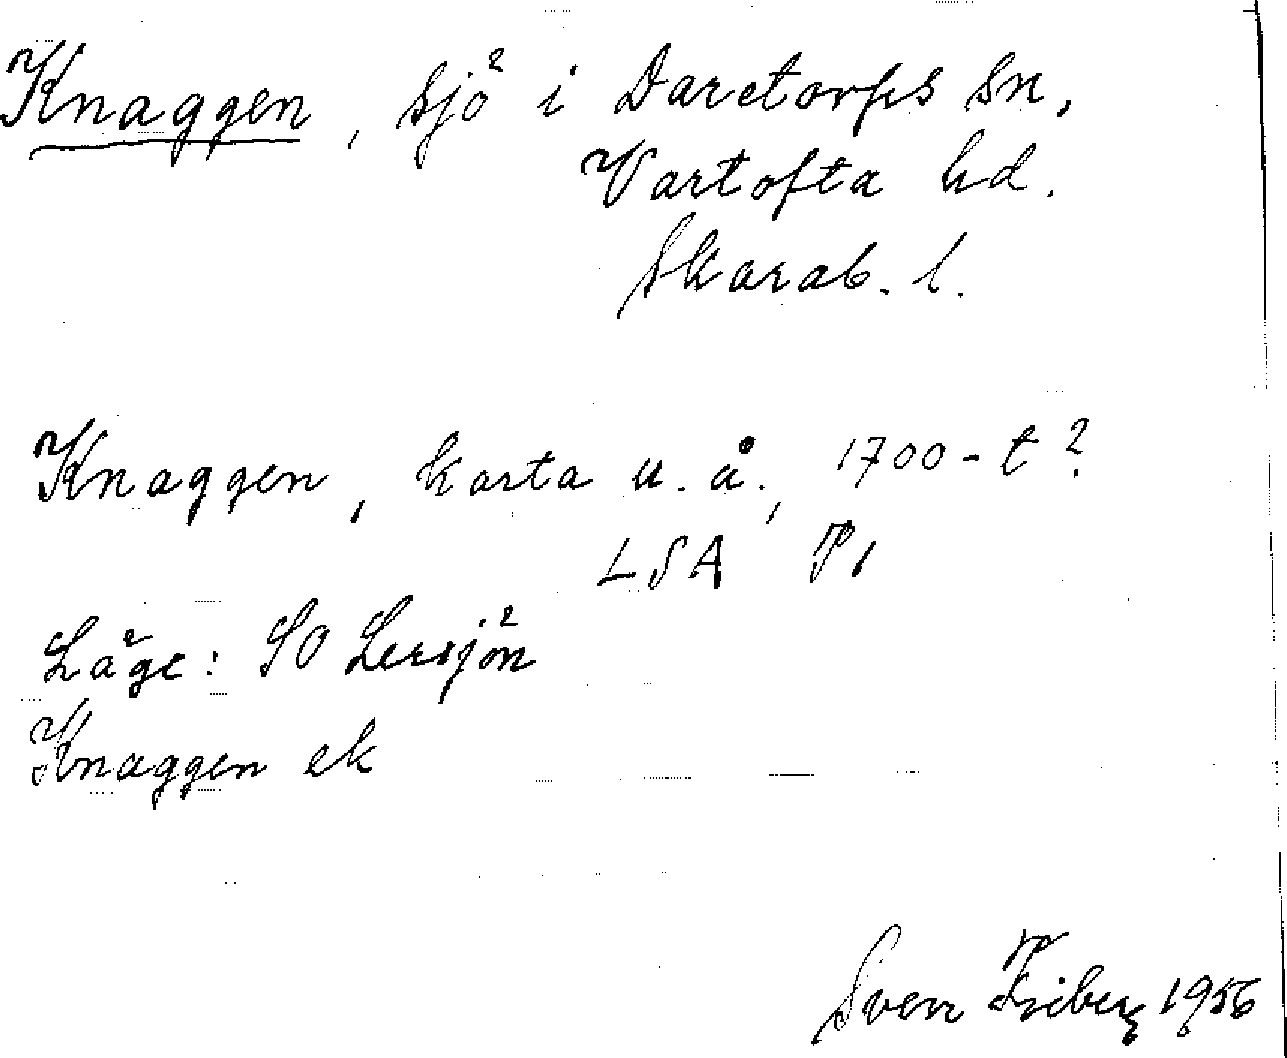 Knaggen, sjö i Daretorps sn,
Vartofta hd.
Skarab. l.
Knaggen, karta u. å., 1700-t?
LSA P1
Läge: SO Lersjön
Knaggen ek
Sven Friberg 1956